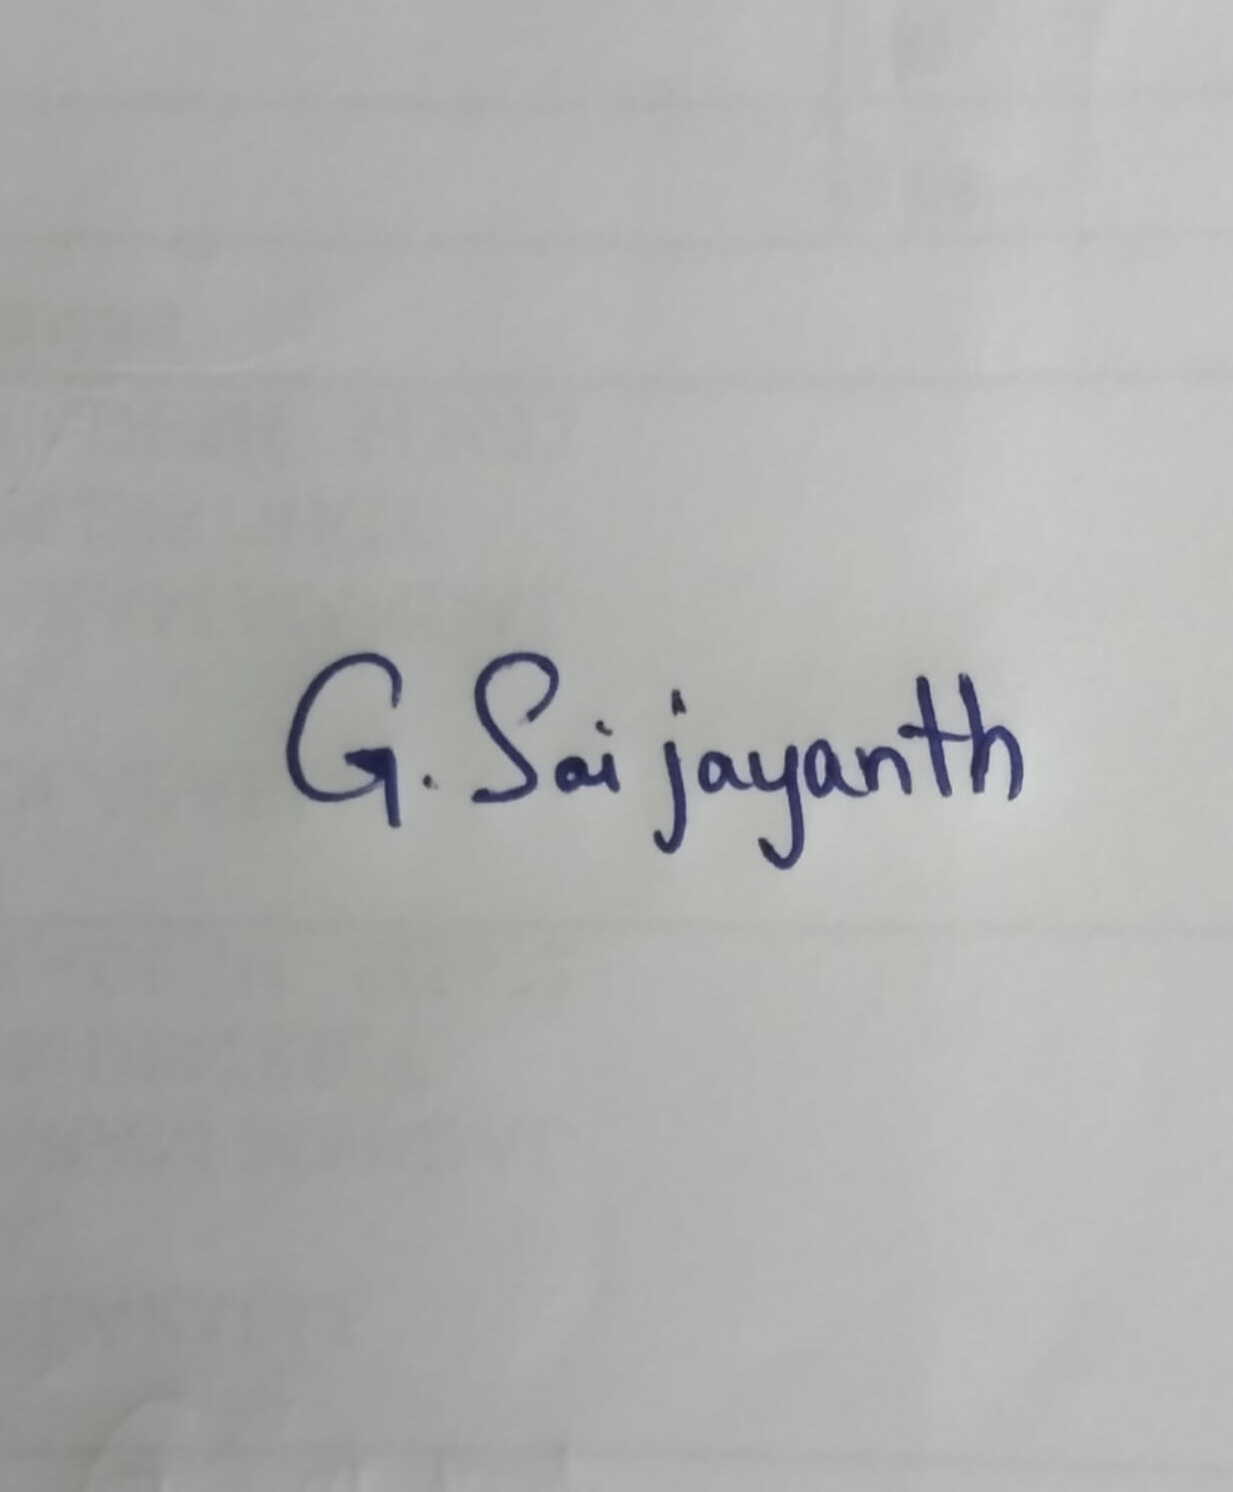 G. Sai jayanth